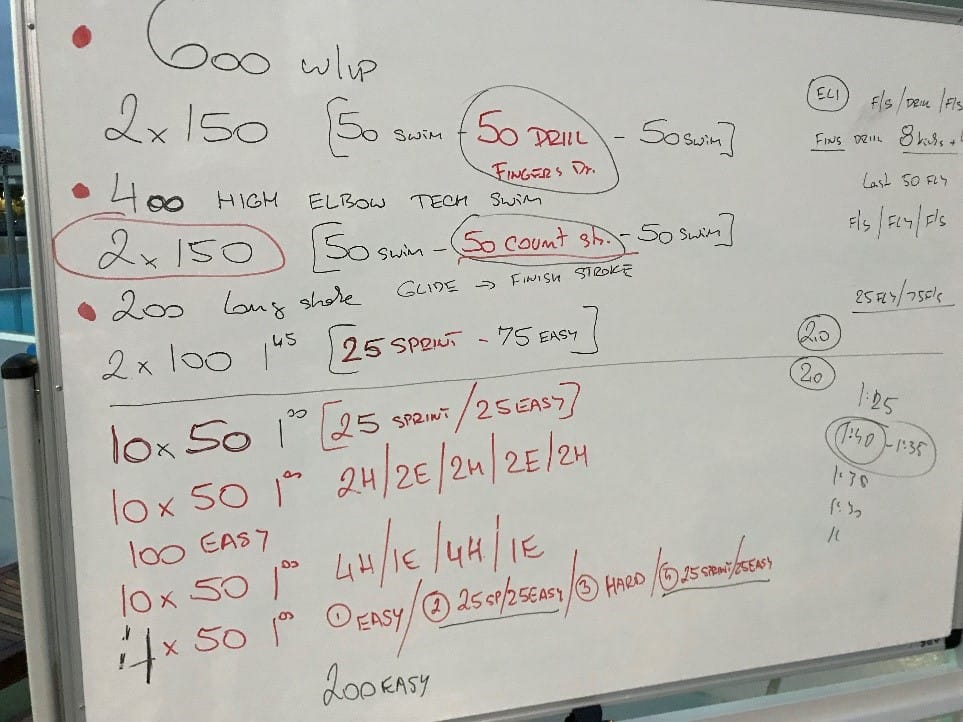 600 W/UP
2 x 150 [50 SWIM - 50 DRILL - 50 SWIM]
FINGERS Dr.
400 HIGH ELBOW TECH SWIM
2 x 150 [50 SWIM - 50 COUNT str. - 50 SWIM]
200 Long stroke GLIDE → FINISH STROKE
2 x 100 1 45 [25 SPRINT - 75 EASY]
10 x 50 1 00 [25 SPRINT / 25 EASY]
10 x 50 1 00 2H/2E/2H/2E/2H
100 EASY
10 x 50 1 00 4H/1E/4H/1E
4 x 50 1 00 ① EASY / ② 25SP/25EASY / ③ HARD / 25 SPRINT/25EASY
200 EASY
ELI F/S / DRILL / F/S
FINS DRILL 8
Last 50 FLY
F/S / FLY / F/S
25 FLY/75 F/S
20
1:25
1:40 - 1:35